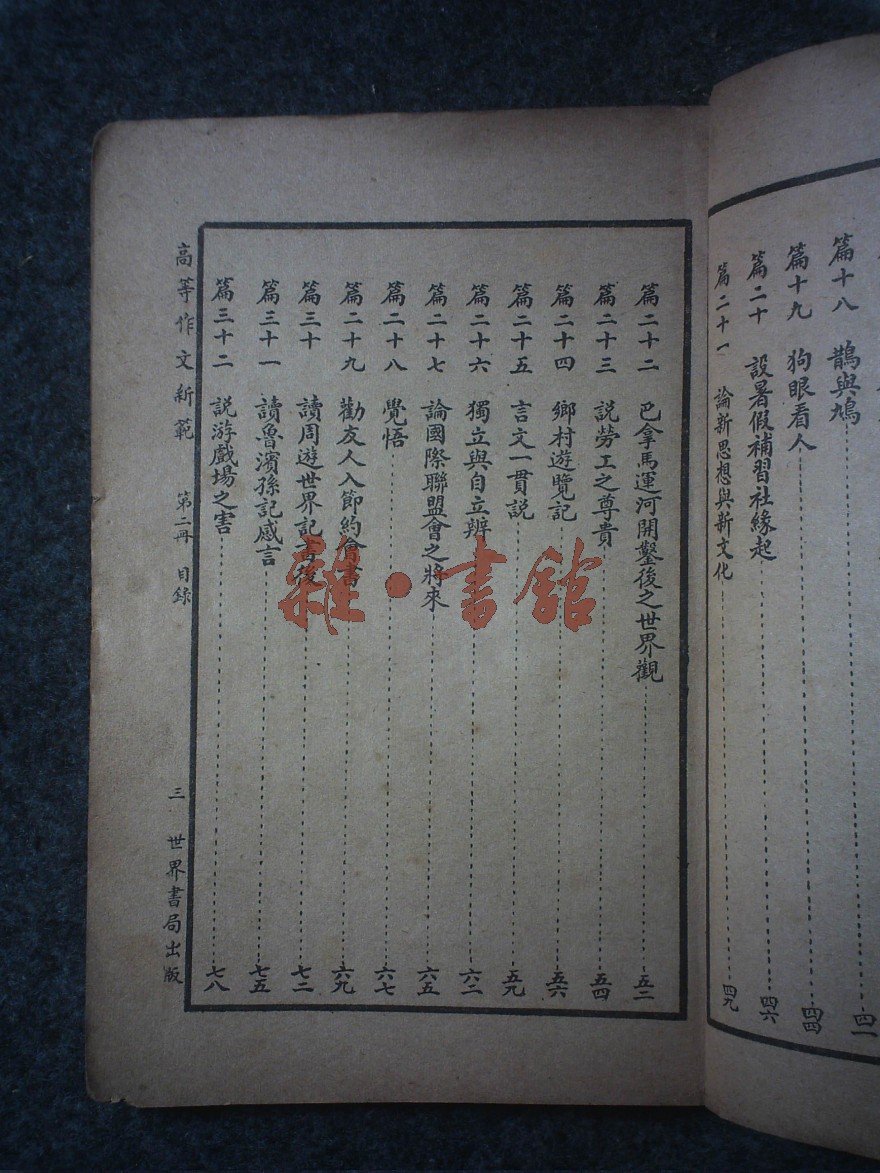 篇十八 鵲與鳩 四一
篇十九 狗眼看人 四四
篇二十 設暑假補習社緣起 四六
篇二十一 論新思想與新文化 四九
篇二十二 巴拿馬運河開鑿後之世界觀 五二
篇二十三 説勞工之尊貴 五四
篇二十四 鄉村遊覽記 五六
篇二十五 言文一貫説 五九
篇二十六 獨立與自立辨 六二
篇二十七 論國際聯盟會之將來 六五
篇二十八 覺悟 六七
篇二十九 勸友人入節約會書 六九
篇三十 讀周遊世界記書後 七二
篇三十一 讀魯濱孫記感言 七五
篇三十二 説游戲場之害 七八
高等作文新範 第二冊 目錄 三 世界書局出版
雜·書館